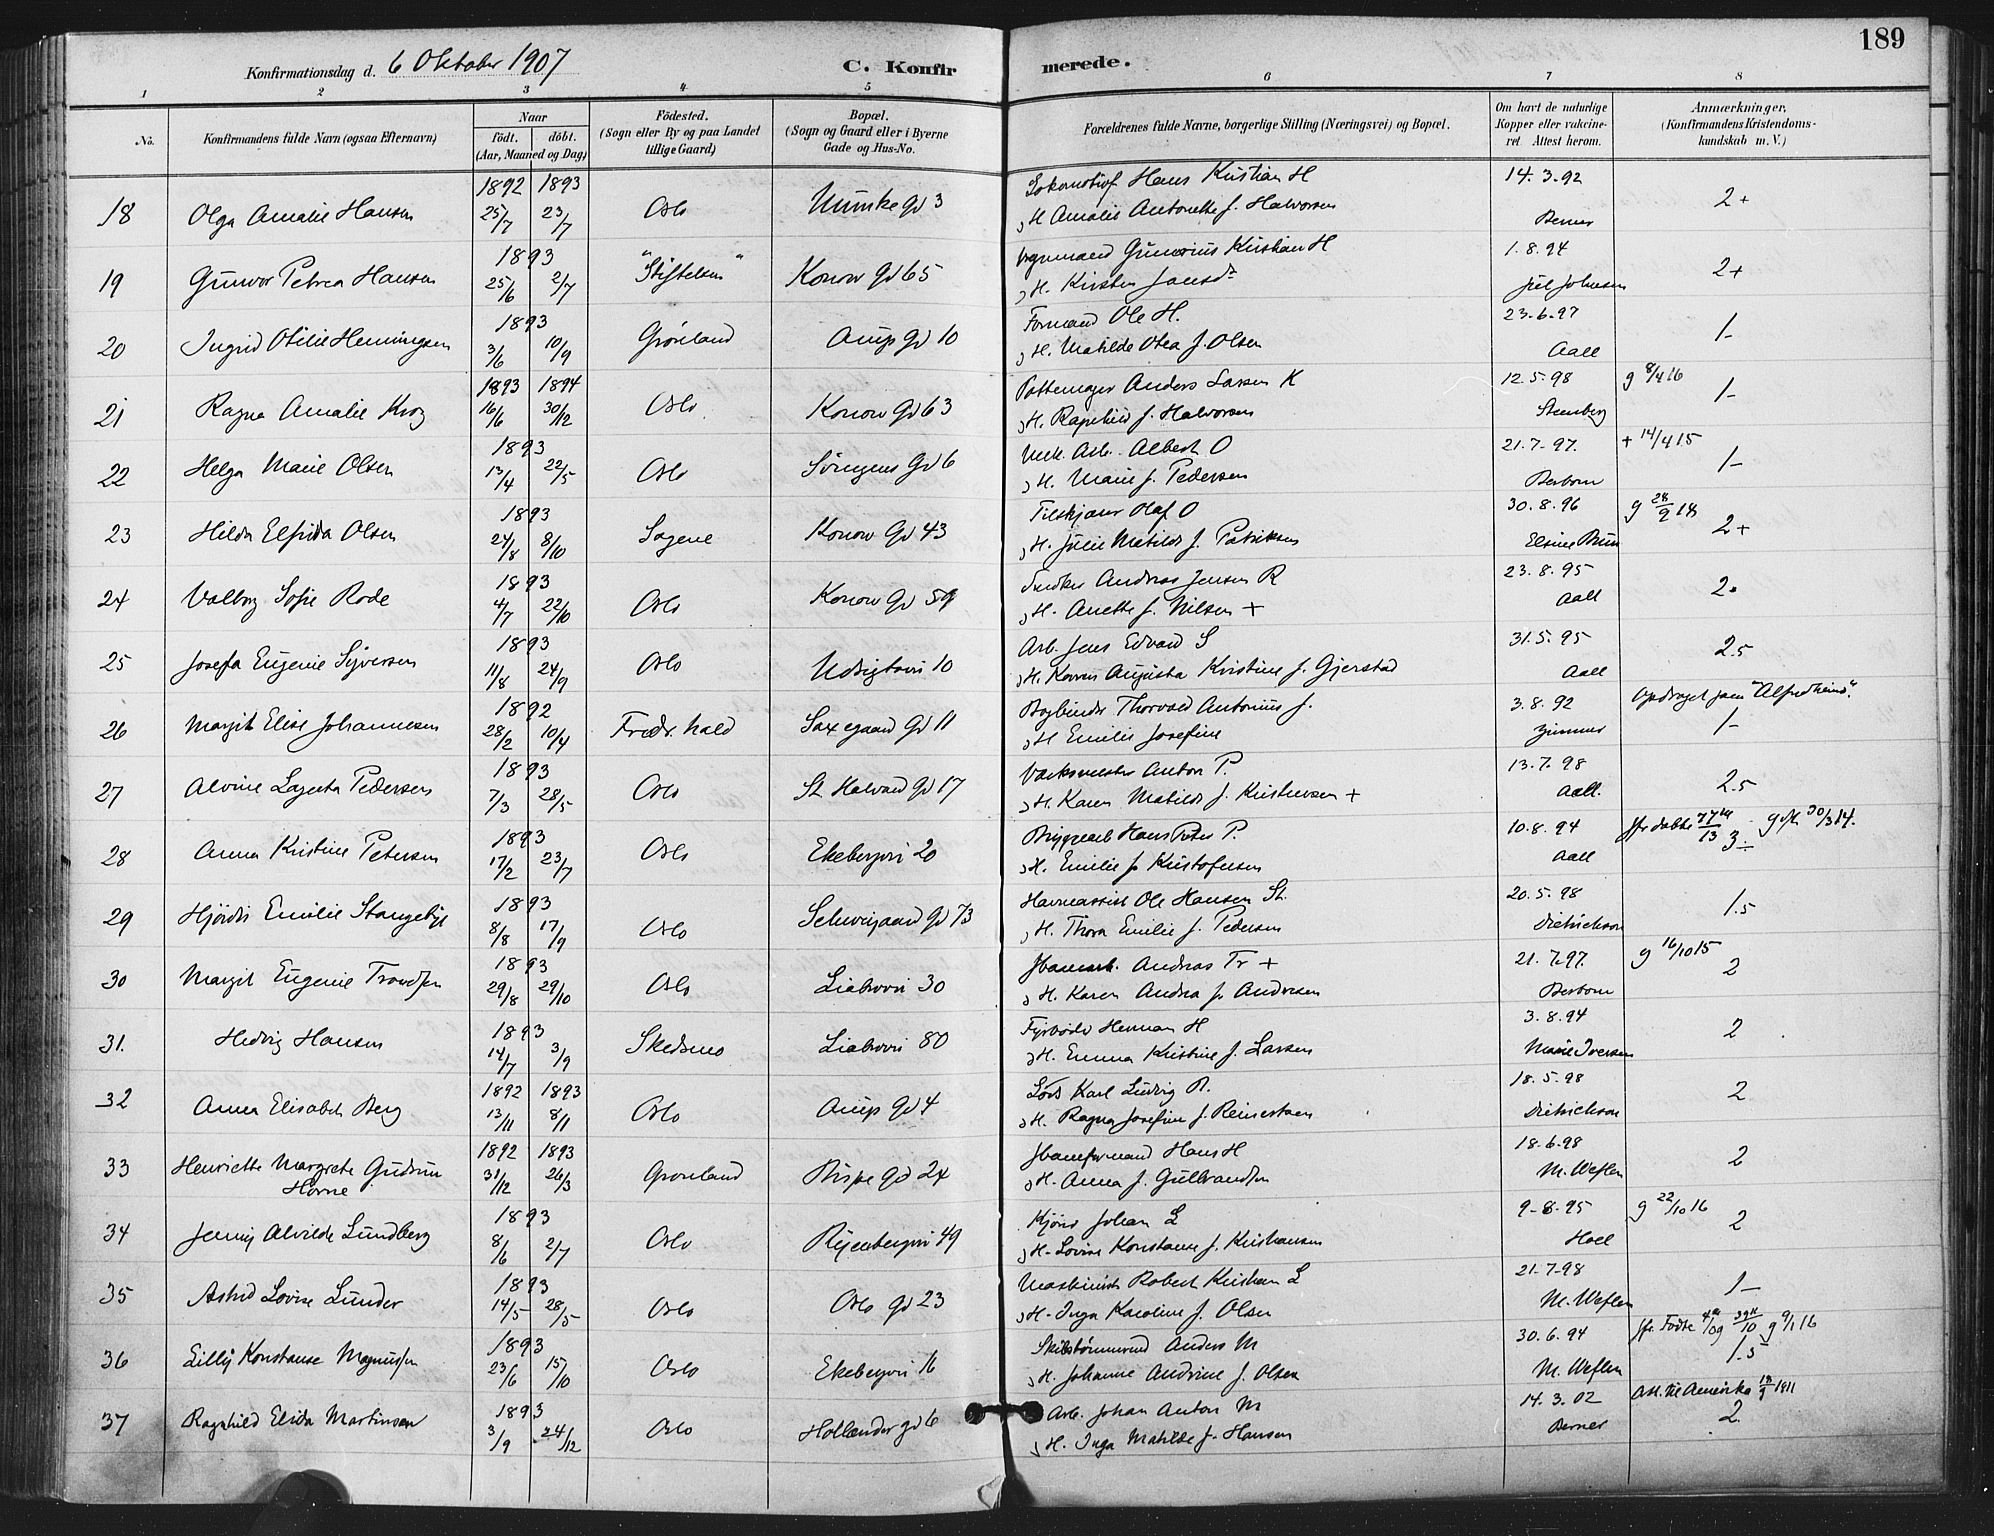 189
Konfirmationsdag d. 6 Oktober 1907 C. Konfirmerede.
1 2 3 4 5 6 7 8
No. Konfirmandens fulde Navn (ogsaa Efternavn) Naar födt. döbt. (Aar, Maaned og Dag) Födested. (Sogn eller By og paa Landet tillige Gaard) Bopæl. (Sogn og Gaard eller i Byerne Gade og Hus-No. Forældrenes fulde Navne, borgerlige Stilling (Næringsvei) og Bopæl. Om havt de naturlige Kopper eller vakcineret. Attest herom. Anmærkninger, (Konfirmandens Kristendomskundskab m. V.)
1892 1893 Hans Kristian H 14.3.92
18 Olga Amalie Hansen 25/7 23/7 Oslo Munke Gd 3 H Amalie Antonette f. Halvorsen Berner 2+
1893 Gunerius Kristian H 1.8.94
19 Gunvor Petrea Hansen 25/6 2/7 "Stiftelsen" Konow Gd 65 H. Kirsten Jansd. Juel Johnsen 2+
1893 Formand Ole H. 23.6.97
20 Ingrid Otilie Henningsen 3/6 10/9 Grønland Arups Gd 10 H. Matilde Olea f. Olsen Aall 1-
1893 1894 Pottemager Anders Larsen K 12.5.98 g 8/4 16
21 Ragna Amalie Krog 16/6 30/12 Oslo Konow Gd 63 H. Ragnhild f. Halvorsen Steenberg 1-
1893 Mek. Arb. Albert O 21.7.97. + 14/4 15
22 Helga Marie Olsen 13/4 22/5 Oslo Sörengens Gd 6 H. Marie f. Pedersen Berbom 1-
1893 Tilskjærer Olaf O 30.8.96 g 28/9 18
23 Hilda Elfrida Olsen 24/8 8/10 Sagene Konow Gd 43 H. Julie Matilde f. Patriksen Elsine Brun 2+
1893 Snedker Andreas Jensen R 23.8.95
24 Valborg Sofie Rode 4/7 22/10 Oslo Konow Gd 59 H. Anette f. Nilsen + Aall 2.
1893 Arb. Jens Edvard S 31.5.95
25 Josefa Eugenie Syversen 11/8 24/9 Oslo Udsigtsvei 10 H. Karen Augusta Kristine f. Gjerstad Aall 2.5
1892 Bogbinder Thorvald Antonius J. 3.8.92 Opdraget paa "Alfredheim".
26 Margit Elise Johannesen 28/2 10/4 Fredr.hald Saxegaard Gd 11 H Emilie Josefine Zimmer 1-
1893 Værksmester Anton P. 13.7.98
27 Alvine Lagerta Pedersen 7/3 28/5 Oslo St Halvard Gd 17 H. Karen Matilde f. Kristensen + Aall. 2.5
1893 Bryggearb Hans Peter P. 10.8.94 Gift 30/3 14.
28 Anna Kristine Petersen 17/2 23/7 Oslo Ekebergvei 20 H. Emilie f. Kristofersen Aall 3÷
1893 Havneassist Ole Hansen St. 20.5.98
29 Hjördis Emilie Stangebye 8/8 17/9 Oslo Schweigaard Gd 73 H. Thora Emilie f. Pedersen Dietrichson 1.5
1893 Jbanearb. Andreas Tr + 21.7.97. g 16/10 15
30 Margit Eugenie Trondsen 29/8 29/10 Oslo Liabrovei 30 H. Karen Andrea f. Andresen Berbom 2
1893 Fyrbøder Herman H 3.8.94
31. Hedvig Hansen 14/7 3/9 Skedsmo Liabrovei 80 H. Emma Kristine f. Larsen Marie Iversen 2
1892 1893 Lods Karl Ludvig B. 18.5.98
32 Anna Elisabeth Berg 13/11 8/1 Oslo Arups Gd 4 H. Ragna Josefine f. Reinertsen Dietrichson 2
1892 1893 Jbaneformand Hans H 18.6.98
33 Henriette Margrete Gudrun Horne 31/12 26/3 Grønland Bispe Gd 24 H. Anna f. Gulbrandsen M. Weflen 2
1893 Kjörer Johan L 9-8-95 g 22/10 16
34 Jenny Alvilde Lundberg 8/6 2/7 Oslo Ryenbergvei 49 H. Lovise Konstanse f. Kristiansen Hoel 2
1893 Maskinist Robert Kristian L 21-7-98
35 Astrid Lovise Lunder 14/5 28/5 Oslo Oslo Gd 23 H. Inga Karoline f. Olsen M. Weflen 1-
1893 Skibstømmermd Anders M 30.6.94 g 9/1 16
36 Lilly Konstanse Magnussen 23/6 15/10 Oslo Ekebergvei 16 H. Johanne Andrine f. Olsen M. Weflen 1.5
1893 Arb. Johan Anton M 14.3.02 Att. til Amerika 18/9 1911
37 Ragnhild Elida Martinsen 3/9 24/12 Oslo Hollænder gd 6 H. Inga Matilde f. Hansen Berner 2.